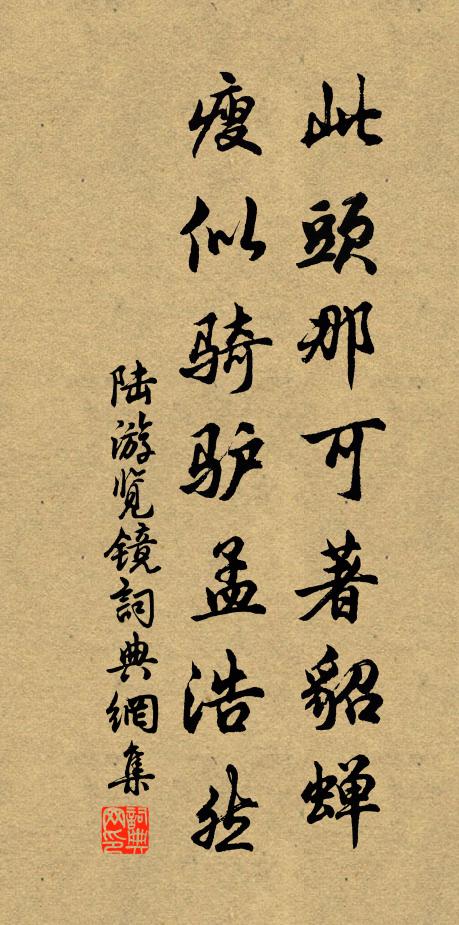 此頭那可著貂蝉
瘦似骑驴孟浩然
陆游览镜詞典網集
詞典网印